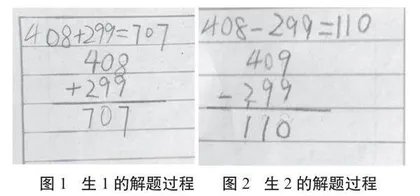 408+299=707
408
+299
707
408-299=110
409
-299
110
图1 生1的解题过程
图2 生2的解题过程